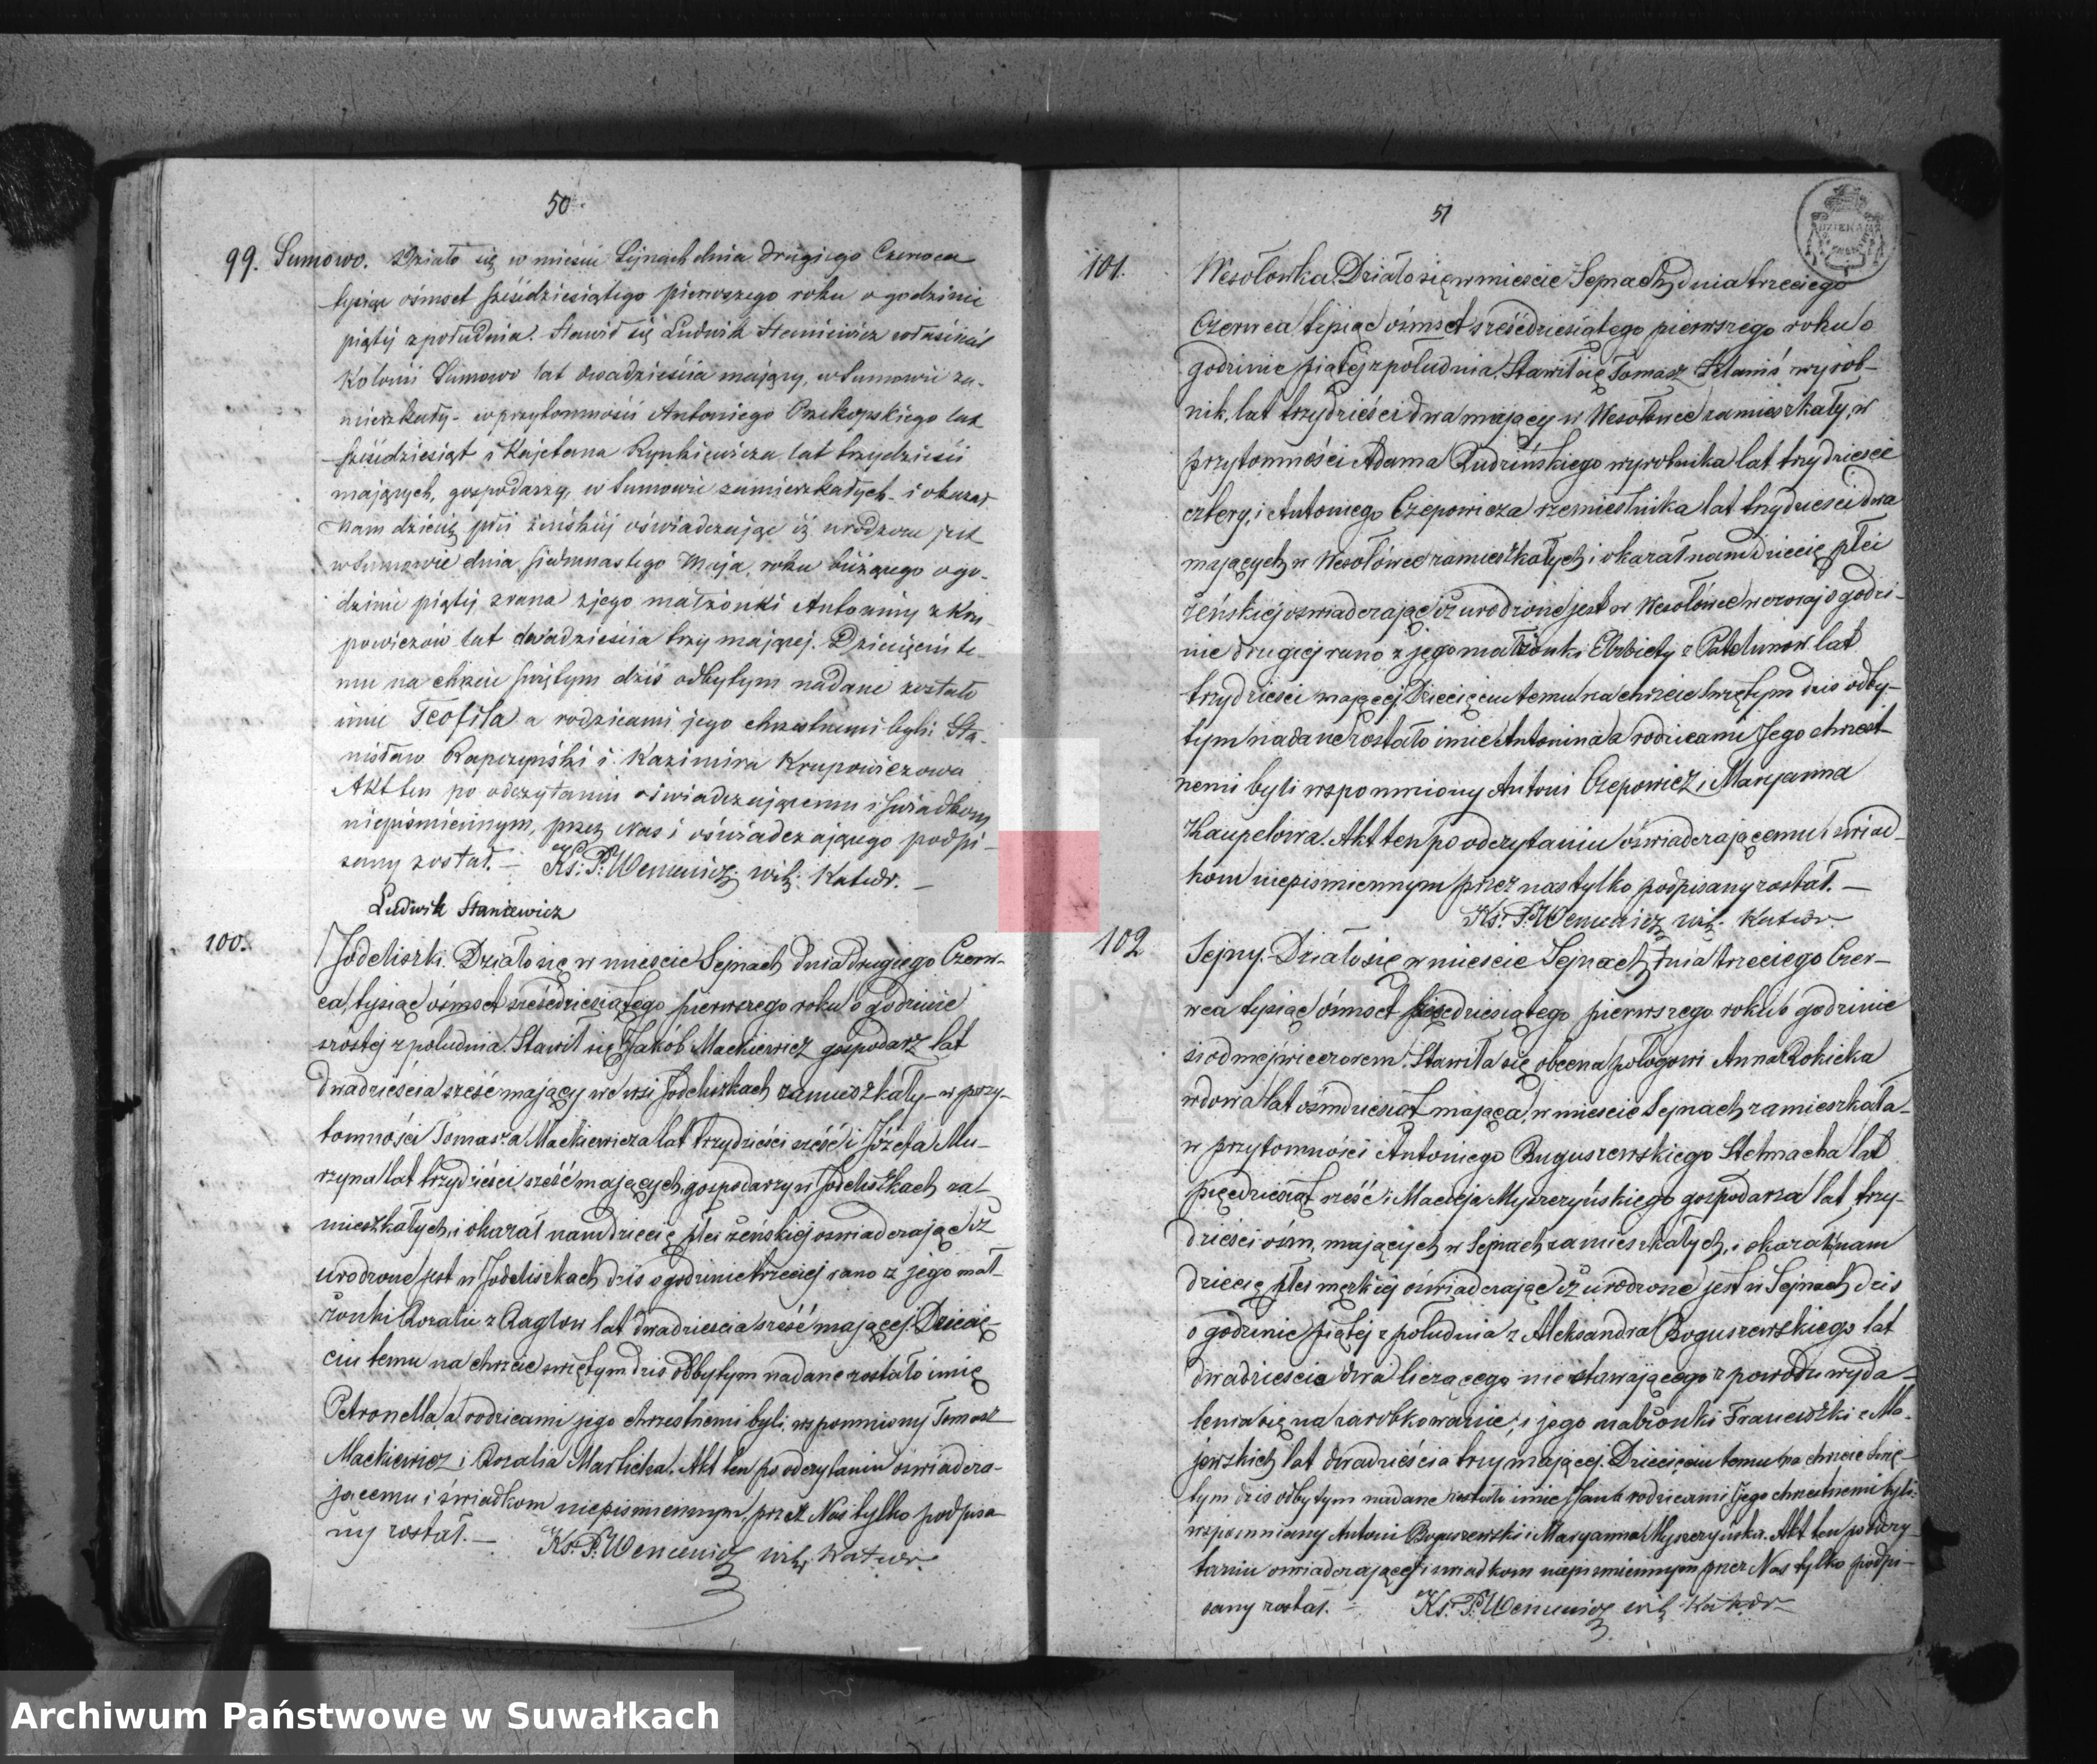 50
99. Sumowo. Działo się w mieście Sejnach dnia drugiego Czerwca
tysiąc ośmset sześćdziesiątego pierwszego roku o godzinie
piątej z południa. Stawił się Ludwik Staniewicz właściciel
Kolonii Sumowo lat dwadzieścia mający, w Sumowie za-
mieszkały - w przytomności Antoniego Przekopskiego lat
sześćdziesiąt i Kajetana Rynkiewicza lat trzydzieści
mających, gospodarzy, w Sumowie zamieszkałych - i okazał
Nam dziecię płci żeńskiej oświadczając iż urodzone jest
w Sumowie dnia siedmnastego Maja, roku bieżącego o go-
dzinie piątej zrana z jego małżonki Antoniny z Kru-
powiczów lat dwadzieścia trzy mającej. Dziecięciu te-
mu na chrzcie świętym dziś odbytym nadane zostało
imie Teofila a rodzicami jego chrzestnemi byli: Sta-
nisław Rapczyński i Kazimira Krupowiczowa
Akt ten po odczytaniu oświadczającemu i świadkom
niepiśmiennym, przez Nas i oświadczającego podpi-
sany został. - Ks: P: Wencewicz wik: Katedr. -
Ludwik Staniewicz
100. Jodeliszki. Działo się w mieście Sejnach dnia drugiego Czerw-
ca, tysiąc ośmset sześćdziesiątego pierwszego roku o godzinie
szóstej z południa. Stawił się Jakób Mackiewicz gospodarz lat
dwadzieścia sześć mający we wsi Jodeliszkach zamieszkały - w przy-
tomności Tomasza Mackiewicza lat trzydzieści sześć i Józefa Mu-
rzyna lat trzydzieści sześć mających, gospodarzy w Jodeliszkach za-
mieszkałych, i okazał nam dziecię płci żeńskiej oswiadczając iż
urodzone jest w Jodeliszkach dziś o godzinie trzeciej rano z jego mał-
żonki Rozalii z Raglow lat dwadzieścia sześć mającej. Dziecię-
ciu temu na chrzcie swiętym dzis odbytym nadane zostało imię
Petronella, a rodzicami jego chrzestnemi byli, wspomniony Tomasz
Mackiewicz i Rozalia Marlicka. Akt ten po odczytaniu oswiadcza-
jącemu i świadkom niepismiennym, przez Nas tylko podpisa-
ny został. - Ks. P. Wencewicz wik. Katedr.
51
101. Wesołowka. Działo się w mieście Sejnach, dnia trzeciego
Czerwca tysiąc ośmset sześćdziesiątego pierwszego roku o
godzinie piątej z południa. Stawił się Tomasz wyrob-
nik, lat trzydzieści dwa mający w Wesołowce zamieszkały, w
przytomności Adama Rudzińskiego wyrobnika lat trzydzieści
cztery, i Antoniego Czepowicza rzemieslnika lat trzydziesci dwa
mających w Wesołówce zamieszkałych i okazał nam dziecię płci
żeńskiej oswiadczając iż urodzone jest w Wesołówce wczoraj o godzi-
nie drugiej rano z jego małżonki Elżbiety z lat
trzydziesci mającej. Dziecięciu temu na chrzcie świętym dzis odby-
tym nadane zostało imie Antonina a rodzicami Jego chrzest-
nemi byli wspomniony Antoni Czepowicz i Maryanna
Akt ten po odczytaniu oświadczającemu i świad-
kom niepismiennym przez nas tylko podpisany został. -
Ks. P. Wencewicz wik. Katedr.
102 Sejny. Działo się w mieście Sejnach, dnia trzeciego Czer-
wca tysiąc ośmset sześćdziesiątego pierwszego roku o godzinie
siodmej wieczorem. Stawiła się obecna połogowi Anna Rokicka
wdowa lat ośmdziesiąt mająca, w mieście Sejnach zamieszkała -
w przytomności Antoniego Boguszewskiego Stelmacha lat
pięćdziesiąt sześć i Macieja Myszczyńskiego gospodarza lat trzy-
dzieści ośm, mających w Sejnach zamieszkałych, i okazała nam
dziecię płci męzkiej oświadczając iż urodzone jest w Sejnach dzis
o godzinie piątej z południa z Aleksandra Boguszewskiego lat
dwadzieścia dwa liczącego niestawającego z powodu wyda-
lenia się na zarobkowanie, i jego małżonki Franciszki z Ma-
jewskich lat dwadzieścia trzy mającej. Dziecięciu temu na chrzcie świę-
tym dzis odbytym nadane zostało imie Jan a rodzicami Jego chrzestnemi byli:
wspomniany Antoni Boguszewski i Maryanna Myszczyńska. Akt ten po odczy-
taniu oswiadczającej i swiadkom niepismiennym przez Nas tylko podpi-
sany został. - Ks. P. Wencewicz wik Katedr
DZIEKAN
Archiwum Państwowe w Suwałkach